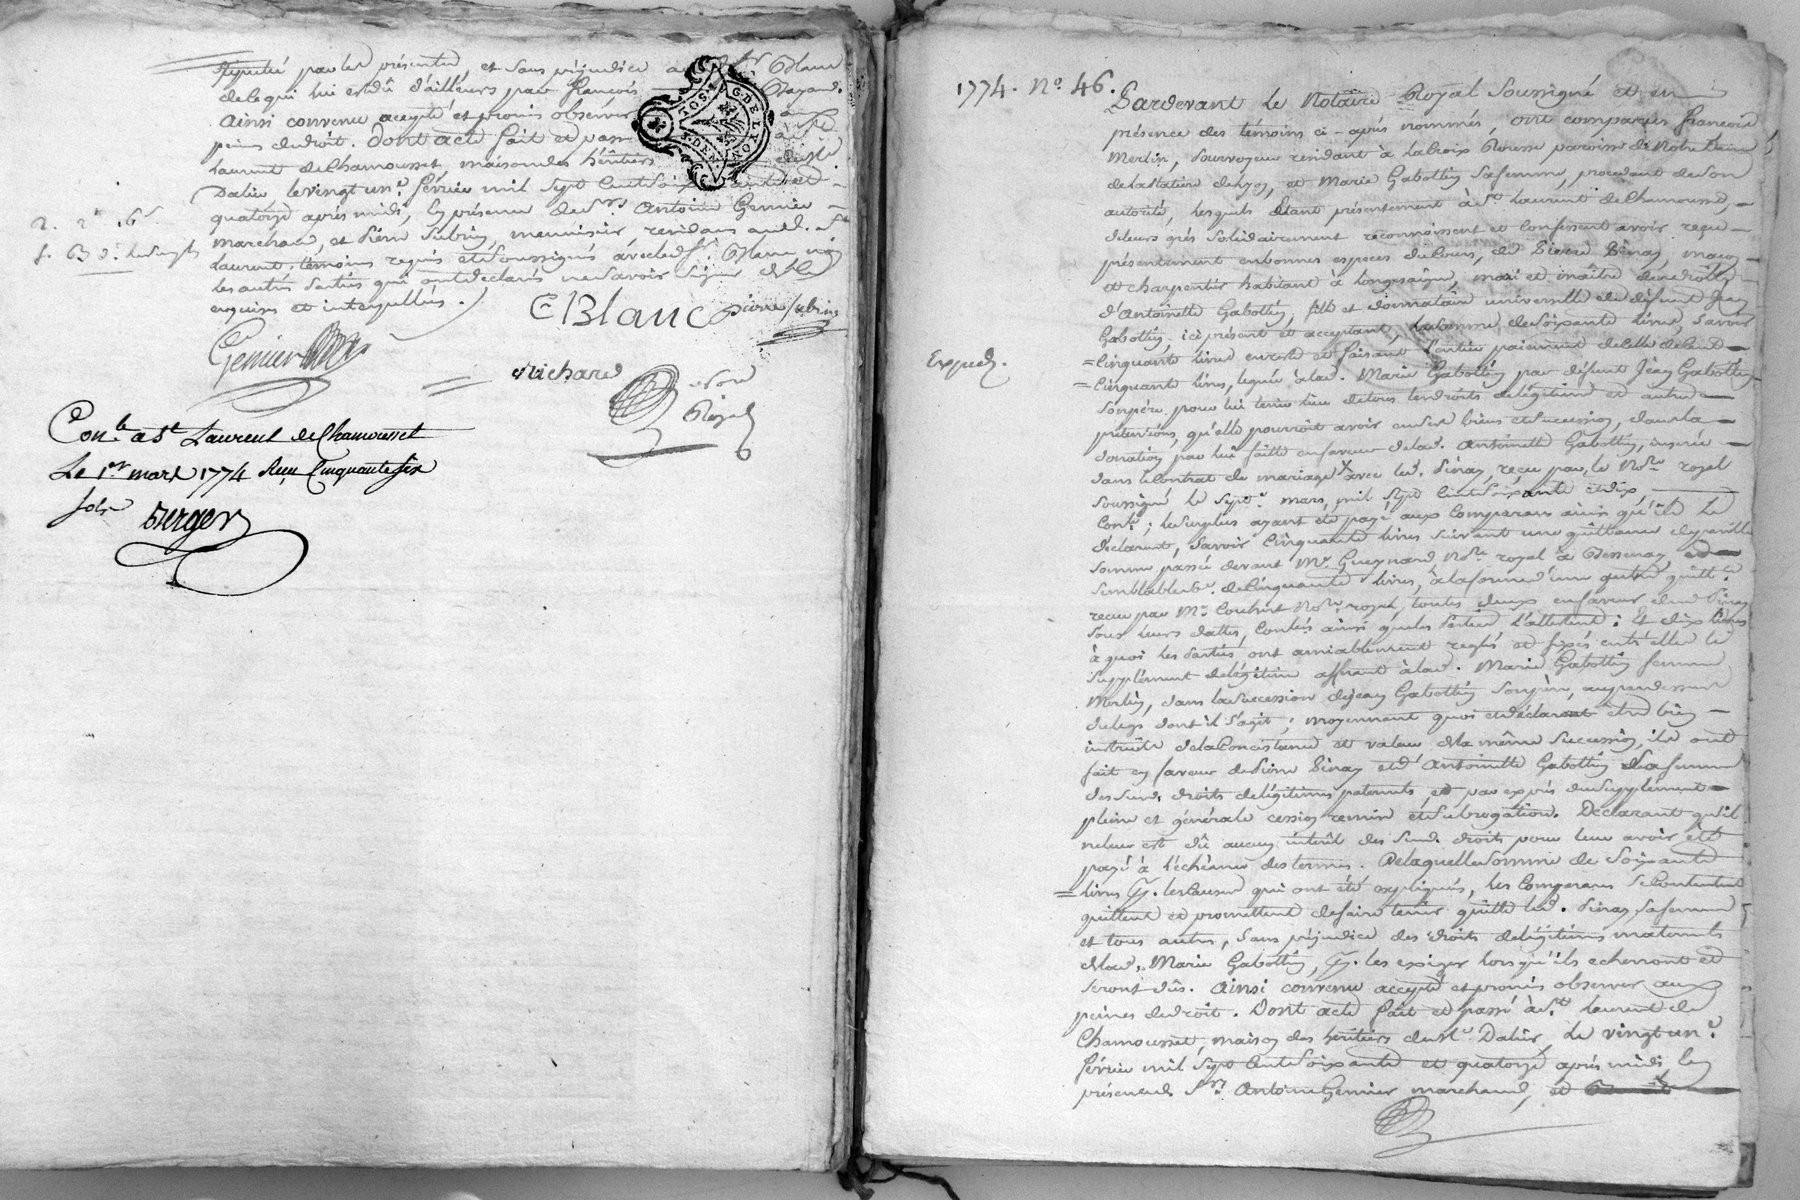 stipulé par les présentes et sans préjudice au Sr Blanc
de ce qui lui est dû d'ailleurs par françois
ainsi convenu accepté et promis observer aux
peines de droit. Dont acte fait et passé à St
Laurent de Chamousset, maison des héritiers de Me
Dalier le vingt un.e février mil sept cent soixante et
quatorze après midi, en présence de Srs Antoine Gennier
marchand, et Pierre Subrin, menuisier, residans aud. St
Laurent, témoins requis et soussignés avec led. Sr Blanc non
les autres parties qui ont déclarés ne savoir signer de ce
enquises et interpellées.
EBlanc pierre subrin
Gennier
Richard not Royal
Con.lé a St Laurent de Chamousset
Le 1er mars 1774 Reçu Cinquante six
sols
Berger
G. DE LYON
1774. No. 46.
Pardevant Le Notaire Royal soussigné et en
présence des témoins ci-après nommés, ont comparus françois
Merlin, pourvoyeur residant à la croix Rousse paroisse de Notre Dame
de la platiere de Lyon, et Marie Gabottin sa femme, procedant de son
autorité, lesquels étant présentement à St Laurent de Chamousset,
de leurs grés solidairement reconnoissent et confessent avoir reçu
présentement en bonnes especes du cours, de Pierre Pinay, maçon
et charpentier habitant à longessaigne, mari et maitre des droits
d'Antoinette Gabottin, fille et donnataire universelle de défunt Jean
Gabottin, ici présent et acceptant, la somme de soixante livres, savoir
Cinquante livres en reste et faisant l'entier paiement de celle de cent
Expéd.
Cinquante livres, leguée à lad. Marie Gabottin par défunt Jean Gabottin
son père pour lui tenir lieu de tous ses droits de légitime et autres
prétentions, qu'elle pourroit avoir en ses biens et succession, dans la
donation par lui faitte en faveur de lad. Antoinette Gabottin, inserée
dans le contrat de mariage avec led. Pinay, reçu par le Nore royal
soussigné le sept.e mars, mil sept cent soixante et dix
Conlé ; le surplus ayant été payé aux comparans ainsi qu'ils le
déclarent, savoir cinquante livres suivant une quittance de pareille
somme passée devant Me Gueynard Nore royal à Bessenay et
semblable se. de cinquante livres, à la forme d'une autre quitt.ce
reçue par Me Nore royal, toutes deux en faveur dud. Pinay
sous leurs dattes, conlées ainsi que les parties l'attestent ; Et dix livres
à quoi les parties ont amiablement reglés et fixés entr'elles le
supplément de légitime afferant à lad. Marie Gabottin femme
Merlin, dans la succession de Jean Gabottin son père, au par dessus
du legs dont il s'agit ; moyennant quoi et déclarant être bien
instruits de la consistance et valeur de la même succession, ils ont
fait en faveur de Pierre Pinay et d'Antoinette Gabottin sa femme
des susd. droits de légitimes paternels, et par exprès du supplément
pleine et générale cession remise et subrogation. Déclarant qu'il
ne leur est dû aucun intérêt des susd. droits pour leur avoir été
payé à l'échéance des termes. De laquelle somme de soixante
livres pr. les causes qui ont été expliquées, les comparans se contentent
quittent et promettent de faire tenir quitte led. Pinay, sa femme
et tous autres, sans préjudice des droits de légitimes maternels
de lad. Marie Gabottin, pr. les exiger lorsqu'ils echerront et
seront dûs. Ainsi convenu accepté et promis observer aux
peines de droit. Dont acte fait et passé à St Laurent de
Chamousset, maison des héritiers de Me Dalier, le vingt un.e
février mil sept cent soixante et quatorze après midi, en
présence de Srs Antoine Gennier marchand, et